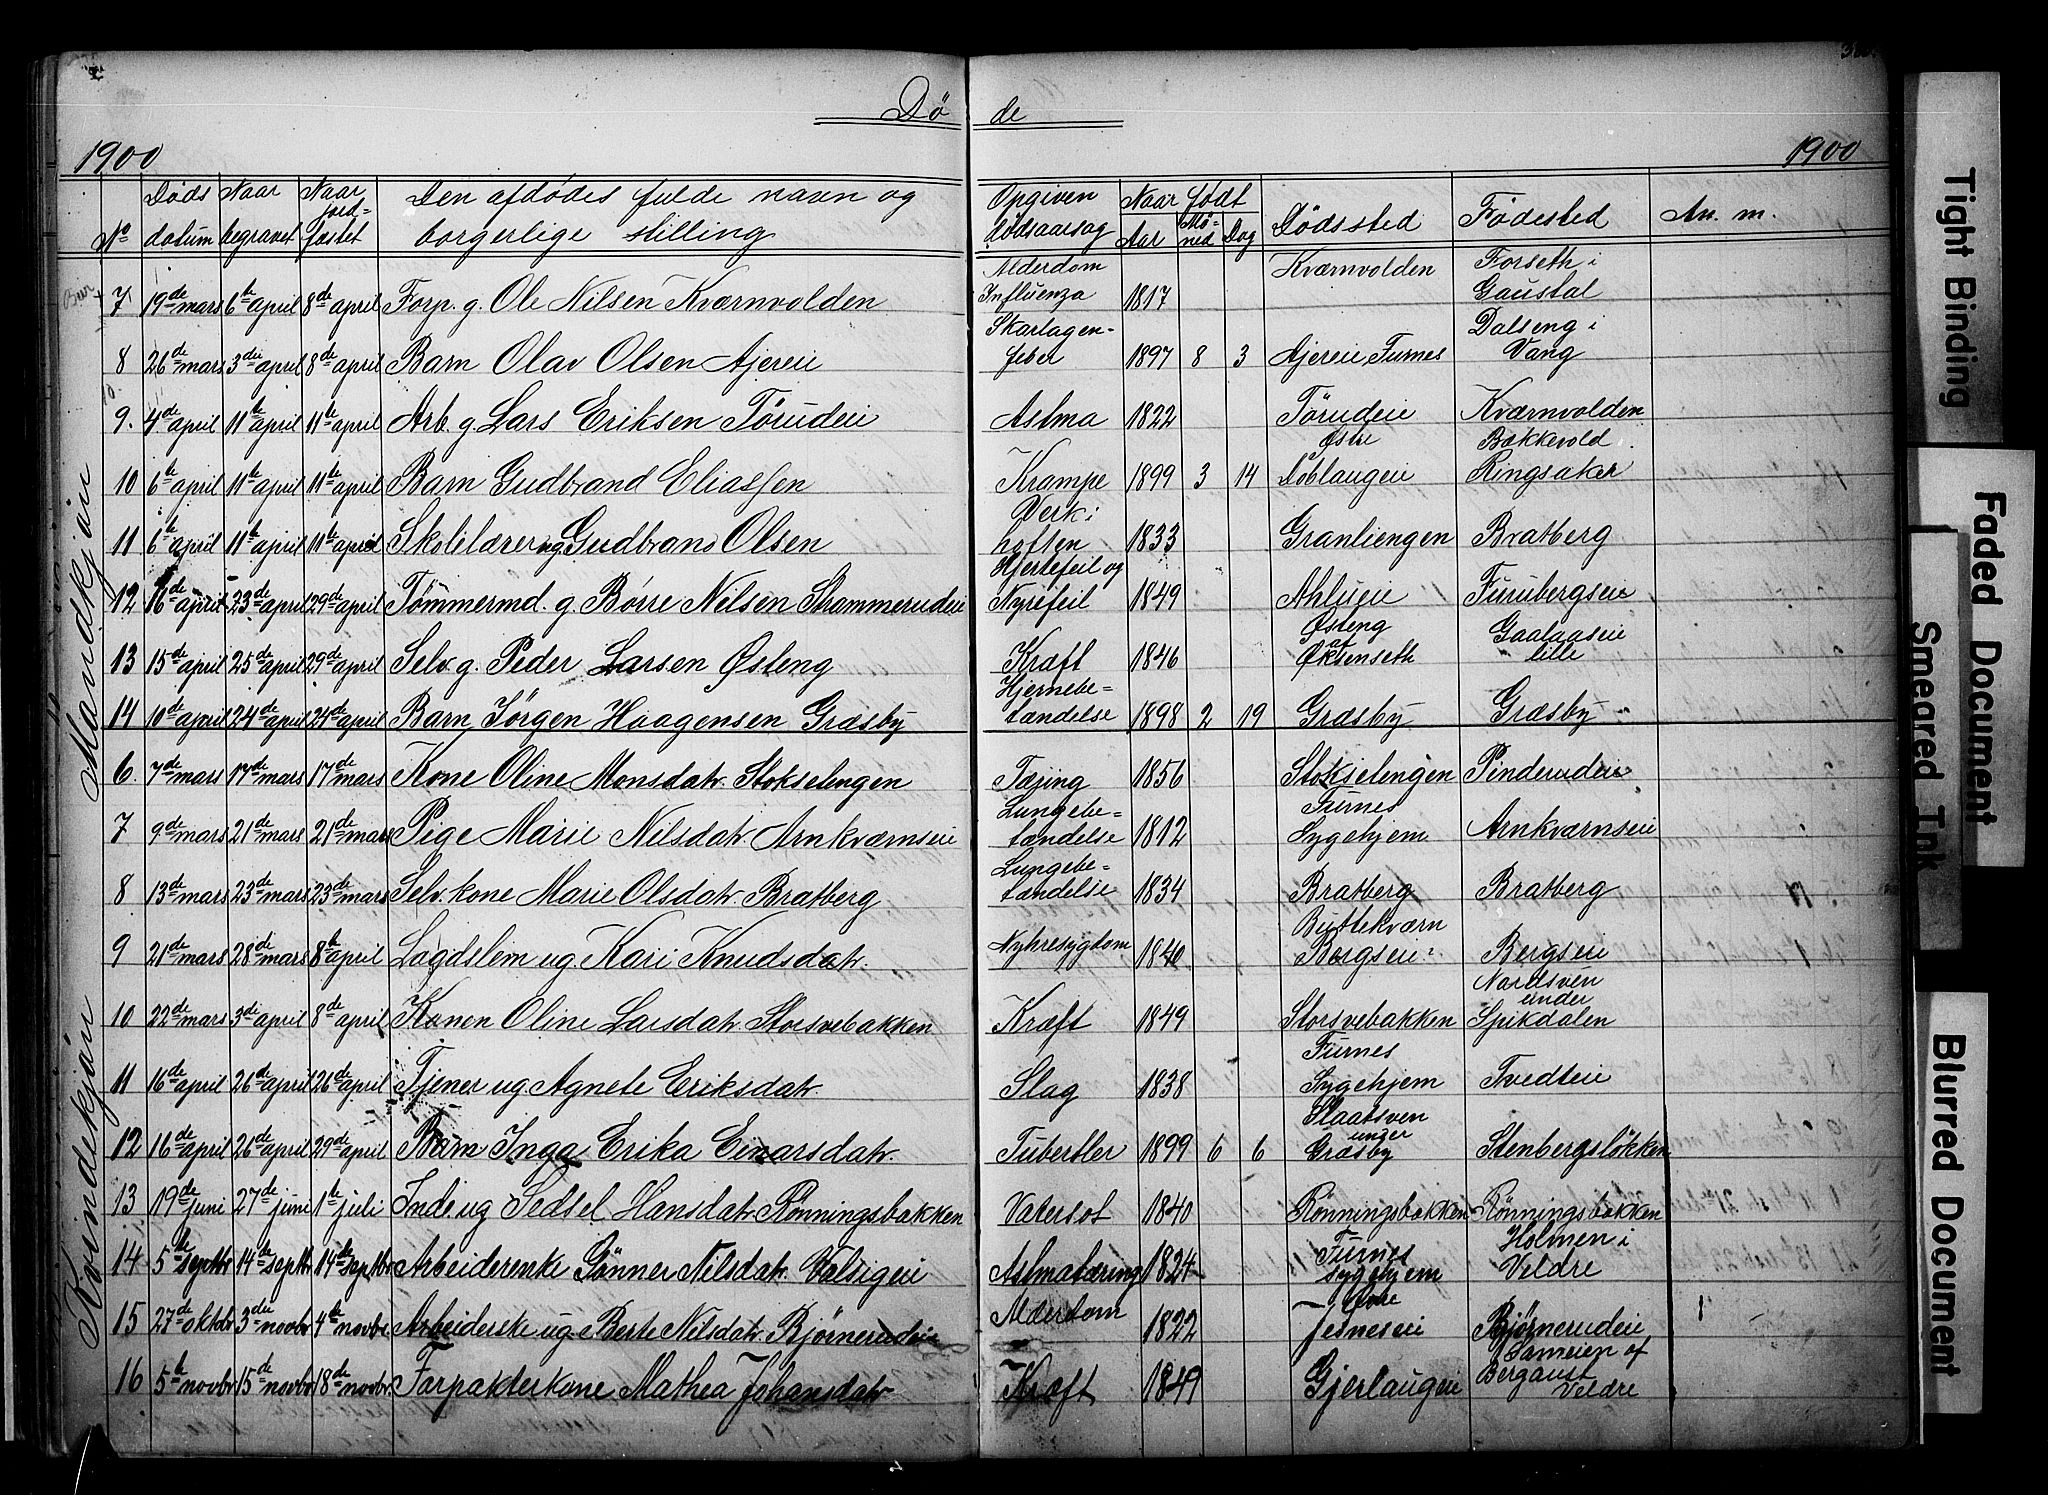 Døde
1900 1900
No Døds datum Naar begravet Naar jordfæstet Den afdødes fulde navn og borgerlige stilling Opgiven dødsaarsag Naar født Aar Maaned Dag Dødssted Fødested An. m.
Mandkjøn
7 19de mars 6te april 8de april Forp. g. Ole Nilsen Kværnvolden Alderdom Influenza 1817 Kværnvolden Forseth i Gausdal
8 26de mars 3die april 8de april Barn Olav Olsen Ajereie Skarlagenfeber 1897 8 3 Ajereie Furnes Dalseng i Vang
9. 4de april 11te april 11te april Arb. g Lars Eriksen Tørudeie Astma 1822 Tørudeie Kværnvolden
10 6te april 11te april 11te april Barn Gudbrand Eliassen Krampe 1899 3 14 Østre Døblaugeie Bækkevold Ringsaker
11 6te april 11te april 11te april Skolelærer ug Gudbrand Olsen Verk i hoften 1833 Granliengen Bratberg
12 16de april 23de april 29de april Tømmermd. g. Børre Nilsen Skammerudeie Hjertefeil og Nyrefeil 1849 Ahlueie Furubergseie
13 15de april 25de april 29de april Selv. g. Peder Larsen Østeng Kræft 1846 Østeng af Øksenseth Gaalaaseie lille
14 10de april 24de april 25de april Barn Jørgen Haagensen Græsby Hjernebetændelse 1898 2 19 Græsby Græsby
Kvindekjøn
6. 7de mars 17de mars 17de mars Kone Oline Monsdatr. Stokselengen Tæring 1856 Stokselengen Pinderudeie
7 9de mars 21de mars 21de mars Pige Marie Nilsdatr. Arnkværnseie Lungebetændelse 1812 Furnes Sygehjem Arnkværnseie
8 13de mars 23de mars 23de mars Selv. kone Marie Olsdatr. Bratberg Lungebetændelse 1834 Bratberg Bratberg
9 21de mars 28de mars 8te april Lagdslem ug Kari Knudsdatr. Nyhresygdom 1840 Buttekværn Bergseie Bergseie
10 22de mars 3die april 8de april Konen Oline Larsdatr. Storsvebakken Kræft 1849 Storsvebakken Nordsven under Spikdalen
11 16de april 26de april 26de april Tjener ug Agnete Eriksdatr. Slag 1838 Furnes Sygehjem Tvedteie
12 16de april 26de april 29de april Barn Inga Erika Einarsdatr. Tuberkler 1899 6 6 Slaatsven under Græsby Stenbergsløkken
13 19de juni 27de juni 1te juli Inde ug Sedsel Hansdatr. Rønningsbakken Vatersot 1840 Rønningsbakken Rønningsbakken
14 5te septbr 14te septbr 14te septbr Arbeiderenke Gønner Nilsdatr. Valsigeie Astmatæring 1824 Furnes sygehjem Holmen i Veldre
15 27de oktbr 3die novbr 4te novbr Arbeiderske ug Berte Nilsdatr. Bjørnerudeie Alderdom 1822 Øvre Jesneseie Bjørnerudeie
16 5te novbr 15de novbr 18de novbr Forpakterkone Mathea Johansdatr Kræft 1849 Gjerlaugeie Sameien af Bergaust Veldre
Tight Binding
Faded Document
Smeared Ink
Blurred Document